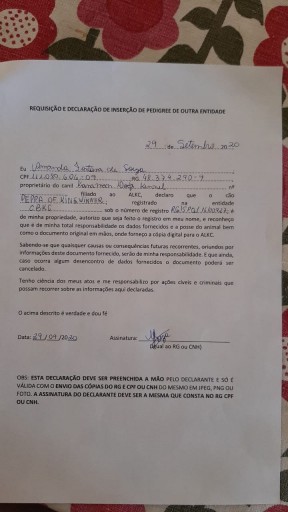 REQUISIÇÃO E DECLARAÇÃO DE INSERÇÃO DE PEDIGREE DE OUTRA ENTIDADE
29 de Setembro 2020
Eu Amanda Santana de Souza
CPF RG 48.374.290-9
proprietário do canil nº
filiado ao ALKC, declaro que o cão
PEPPA OF KING WINNER, registrado na entidade
CBKC sob o número de registro a
de minha propriedade, autorizo que seja feito o registro em meu nome, e reconheço
que é de minha total responsabilidade os dados fornecidos e a posse do animal bem
como o documento original em mãos, onde forneço a cópia digital para o ALKC.
Sabendo-se que quaisquer causas ou consequências futuras recorrentes, oriundos por
informações deste documento fornecido, serão de minha responsabilidade. E que ainda,
caso ocorra algum desencontro de dados fornecidos o documento poderá ser
cancelado.
Tenho ciência dos meus atos e me responsabilizo por ações cíveis e criminais que
possam recorrer sobre as informações aqui declaradas.
O acima descrito é verdade e dou fé
Data: 29/09/2020 Assinatura:
(igual ao RG ou CNH)
OBS: ESTA DECLARAÇÃO DEVE SER PREENCHIDA A MÃO PELO DECLARANTE E SÓ É
VÁLIDA COM O ENVIO DAS CÓPIAS DO RG E CPF OU CNH DO MESMO EM JPEG, PNG OU
FOTO. A ASSINATURA DO DECLARANTE DEVE SER A MESMA QUE CONSTA NO RG CPF
OU CNH.